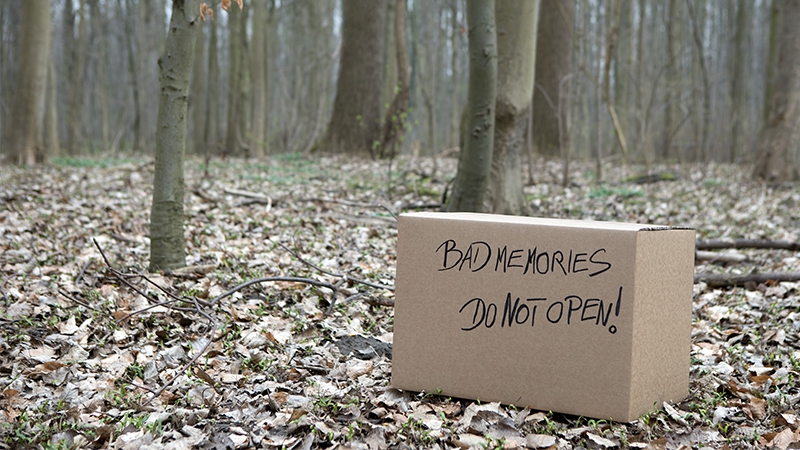 BAD MEMORIES
DO NOT OPEN!